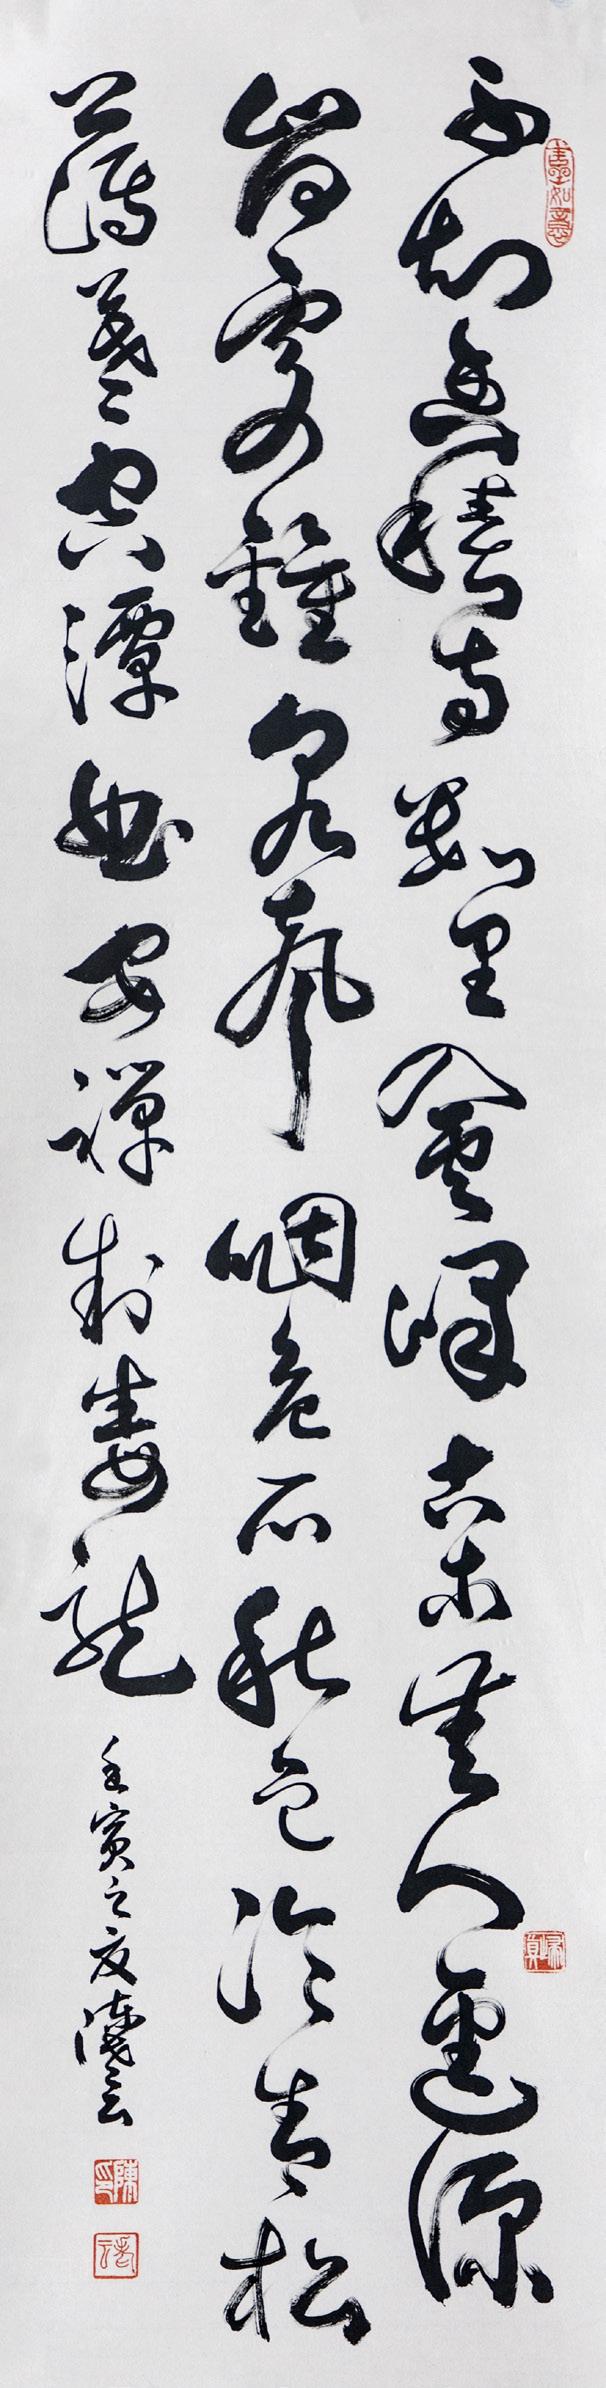 不知香積寺數里入雲峰古木無人逕深
山何處鐘泉聲咽危石秋色冷青松
薄暮空潭曲安禪制毒龍
壬寅之夏
陳印